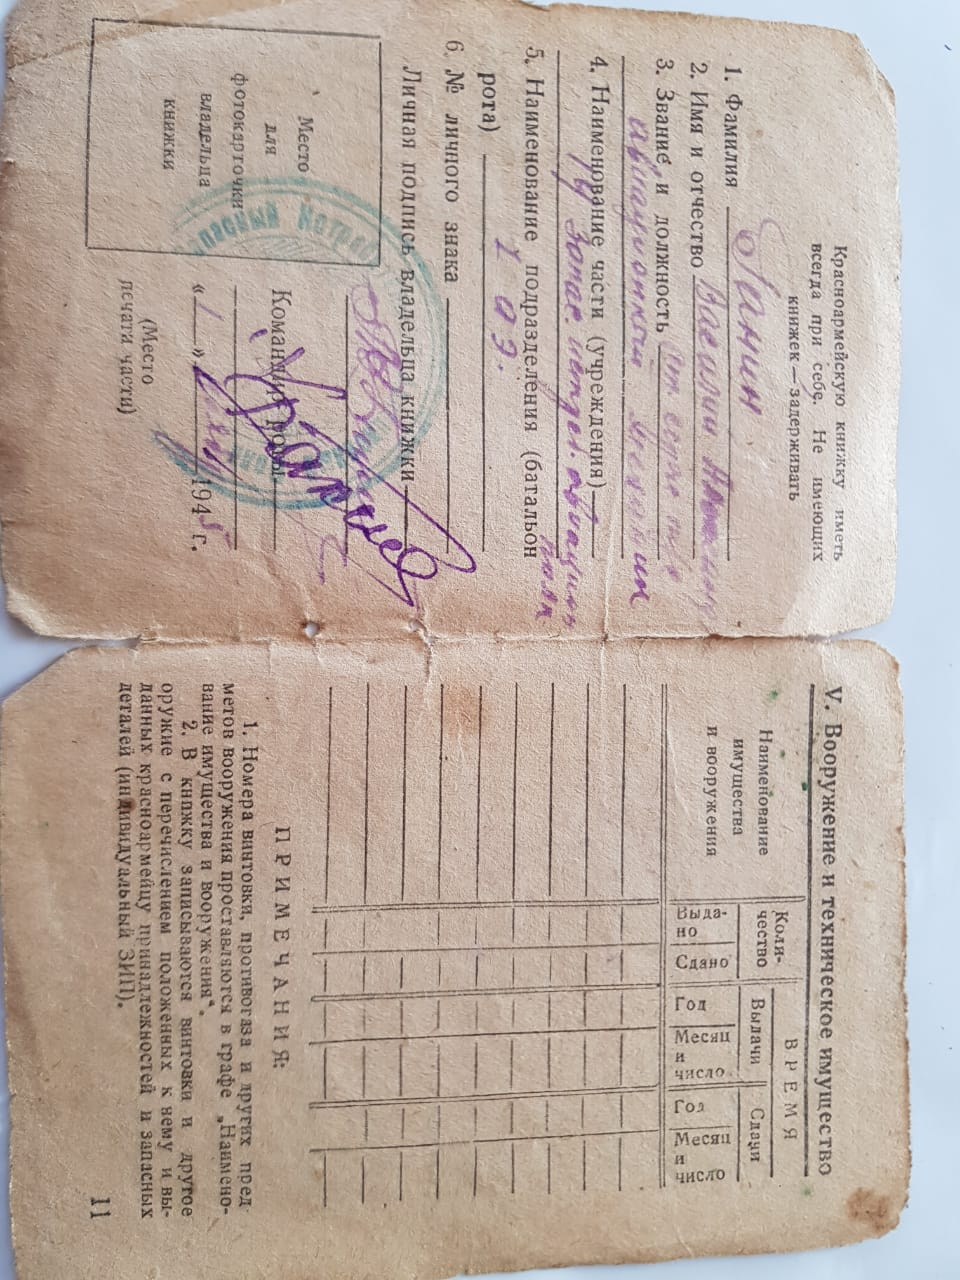 Красноармейскую книжку иметь
всегда при себе. Не имеющих
книжек — задерживать
1. Фамилия Ганин
2. Имя и отчество Василий
3. Звание и должность
4. Наименование части (учреждения)
5. Наименование подразделения (батальон
рота) 1 аэ.
6. № личного знака
Личная подпись владельца книжки
Место
для
фотокарточки
владельца
книжки
Командир роты
«1» 1945 г.
(Место
печати части)
V. Вооружение и техническое имущество
Наименование
имущества
и вооружения
Коли-
чество
ВРЕМЯ
Выдачи
Сдачи
Выда-
но
Сдано
Год
Месяц
и
число
Год
Месяц
и
число
ПРИМЕЧАНИЯ:
1. Номера винтовки, противогаза и других пред
метов вооружения проставляются в графе „Наимено-
вание имущества и вооружения“.
2. В книжку записываются винтовки и другое
оружие с перечислением положенных к нему и вы-
данных красноармейцу принадлежностей и запасных
деталей (индивидуальный ЗИП).
11